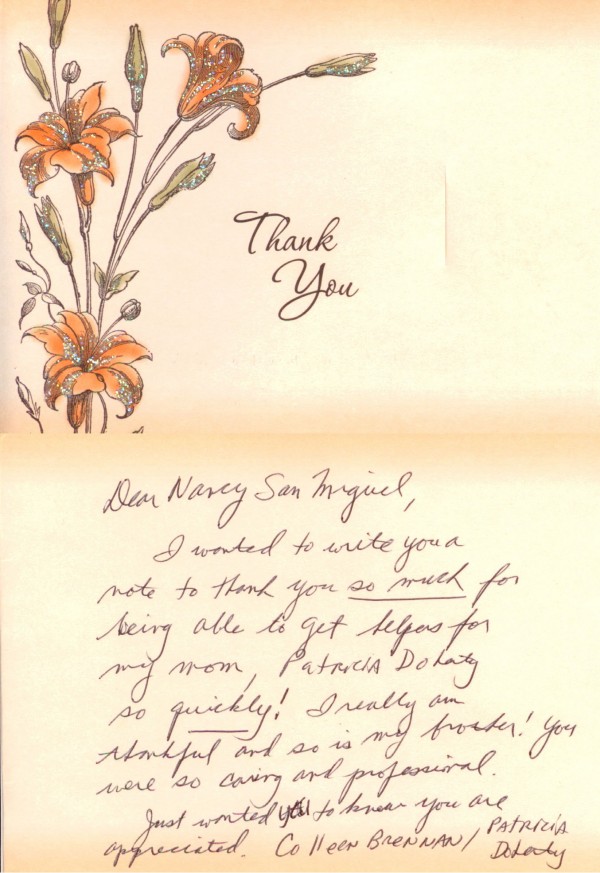 Thank
You
Dear Nancy San Miguel,
I wanted to write you a
note to thank you so much for
being able to get helpers for
my mom, PATRICIA Doherty
so quickly! I really am
thankful and so is my brother! You
were so caring and professional.
Just wanted you to know you are
appreciated. Colleen BRENNAN/ PATRICIA
Doherty